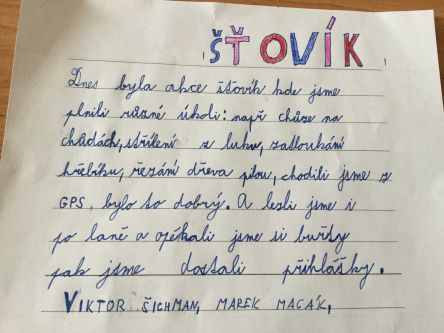 ŠŤOVÍK
Dnes byla akce šťovík kde jsme
plnili různé úkoli: např chůze na
chůdách, střílení z luku, zatloukání
hřebíku, řezání dřeva pilou, chodili jsme s
GPS, bylo to dobrý. A lezli jsme i
po laně a opékali jsme si buřty
pak jsme dostali přihlášky.
VIKTOR ŠICHMAN, MAREK MACÁK,